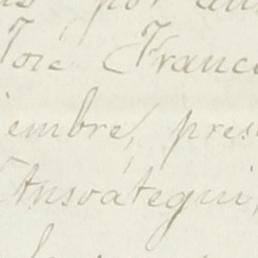 por
José Franc
iembre, pres
Ansoátegui,